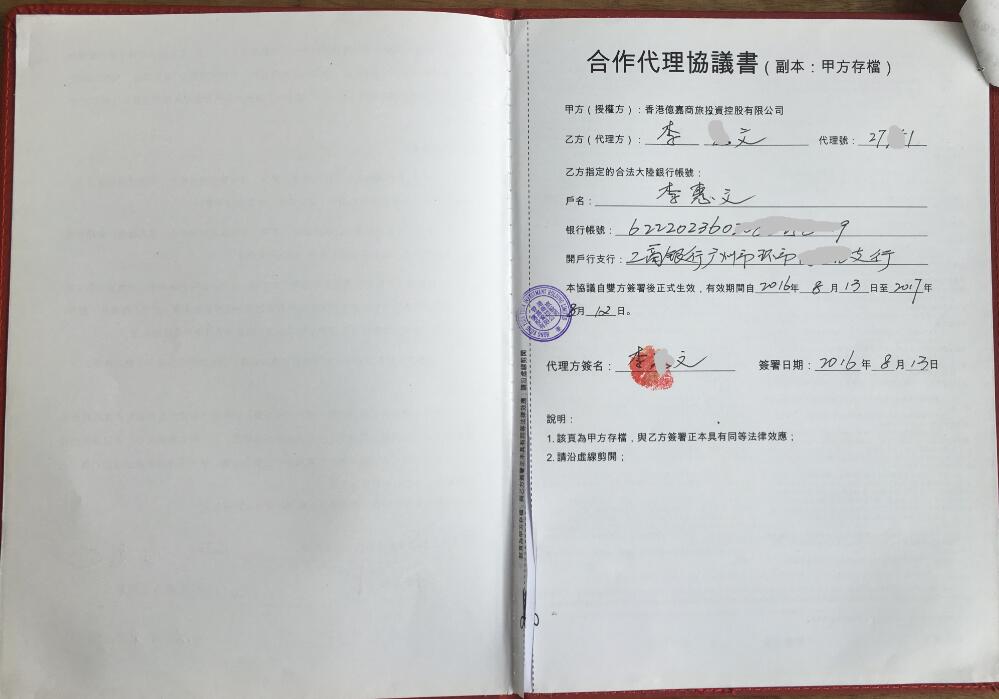 合作代理協議書（副本：甲方存檔）
甲方（授權方）：香港億嘉商旅投資控股有限公司
乙方（代理方）：李 文 代理號：27 1
乙方指定的合法大陸銀行帳號：
戶名：李惠文
银行帳號：622202360 9
開戶行支行：工商银行广州市环市 支行
本協議自雙方簽署後正式生效，有效期間自2016年8月13日至2017年
8月12日。
代理方簽名：李 文 簽署日期：2016年8月13日
說明：
1.該頁為甲方存檔，與乙方簽署正本具有同等法律效應；
2.請沿虛線剪開；